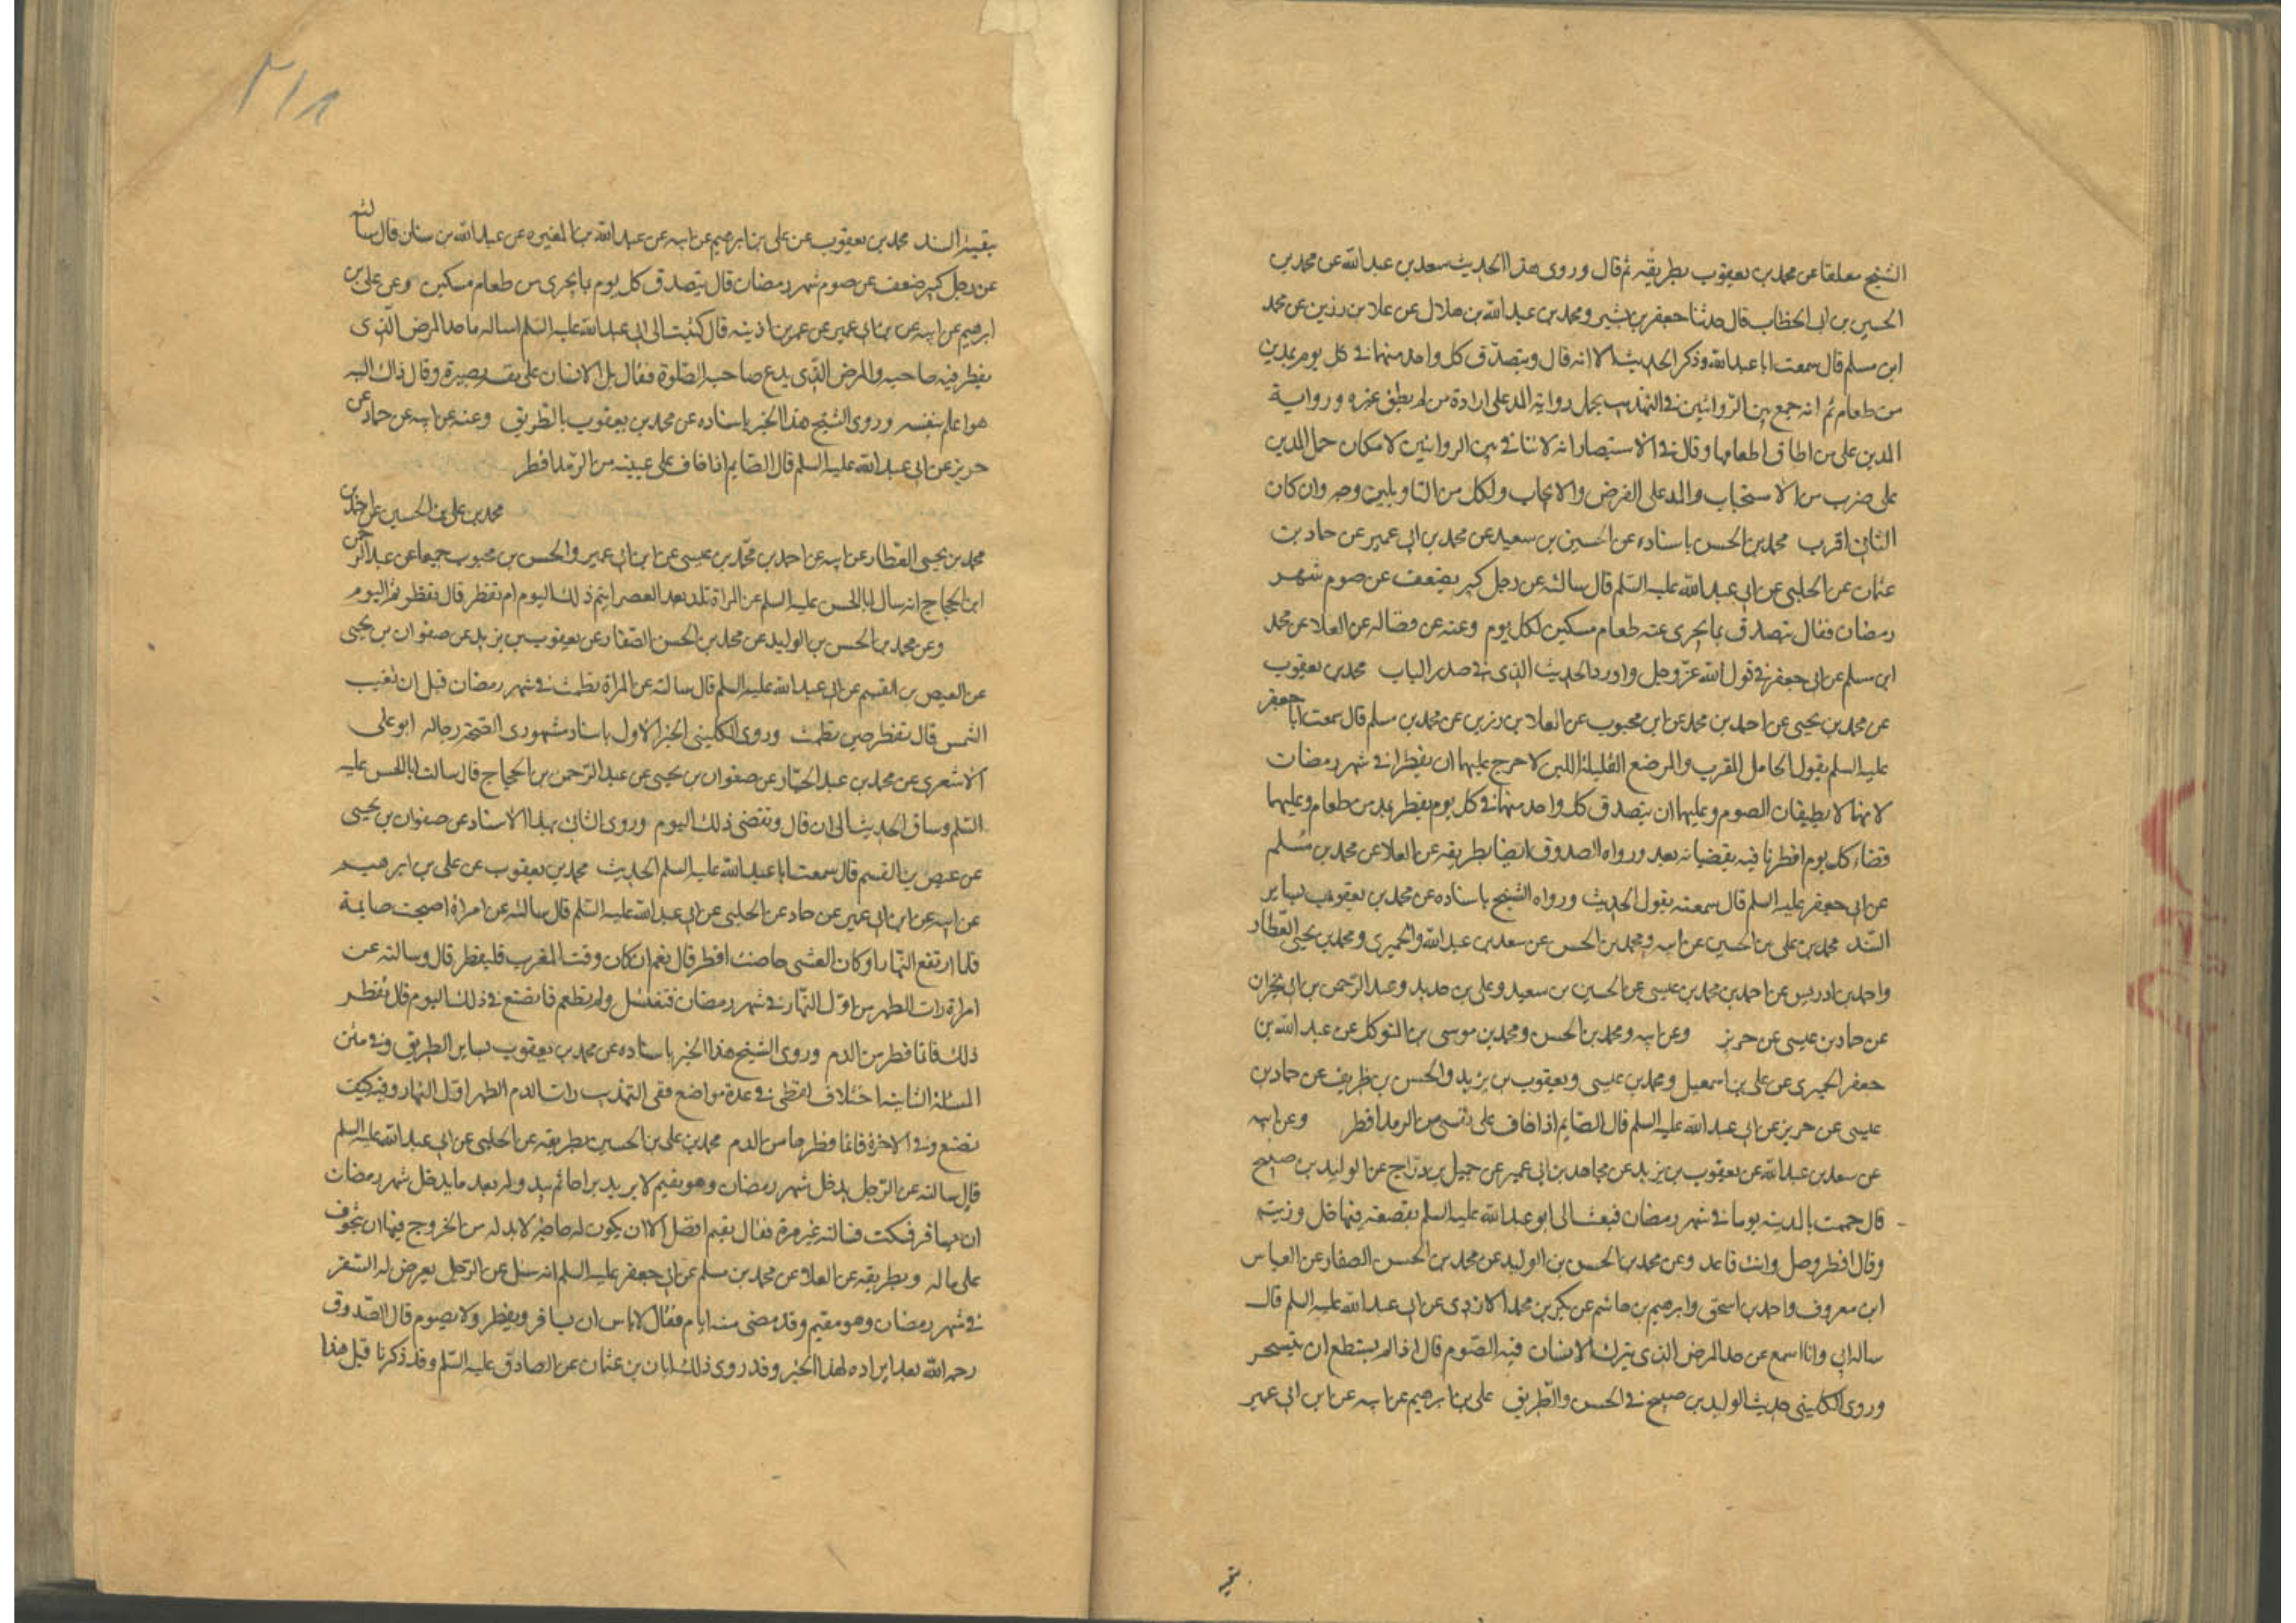 الشيخ معلقا عن محمد بن يعقوب بطريقه ثم قال وروى هذا الحديث سعد بن عبد الله عن محمد بن
الحسين بن ابى الخطاب قال حدثنا جعفر بن بشير ومحمد بن عبد الله بن هلال عن علا بن رزين عن محمد
ابن مسلم قال سمعت ابا عبد الله وذكر الحديث الا انه قال ويتصدق كل واحد منهما في كل يوم بمدين
من طعام ثم انه جمع بين الروايتين في التهذيب بحمل رواية المد على ارادة من لم يطق غيره ورواية
المدين على من اطاق اطعامها وقال في الاستبصار انه لا تنافي بين الروايتين لامكان حمل المدين
على ضرب من الاستحباب والمد على الفرض والايجاب ولكل من التاويلين وجه وان كان
الثاني اقرب محمد بن الحسن باسناده عن الحسين بن سعيد عن محمد بن ابى عمير عن حماد بن
عثمان عن الحلبي عن ابي عبد الله عليه السلم قال سالته عن رجل كبير يضعف عن صوم شهر
رمضان فقال يتصدق بما يجزى عنه طعام مسكين لكل يوم وعنه عن فضاله عن العلا عن محمد
ابن مسلم عن ابى جعفر في قول الله عز وجل واورد الحديث الذي في صدر الباب محمد بن يعقوب
عن محمد بن يحيى عن احمد بن محمد عن ابن محبوب عن العلا بن رزين عن محمد بن مسلم قال سمعت ابا جعفر
عليه السلم يقول الحامل المقرب والمرضع القليلة اللبن لا حرج عليهما ان يفطرا في شهر رمضان
لانهما لا يطيقان الصوم وعليهما ان يتصدق كل واحد منهما في كل يوم يفطر بمد من طعام وعليهما
قضاء كل يوم افطرتا فيه يقضيانه بعد ورواه الصدوق ايضا بطريقه عن العلا عن محمد بن مسلم
عن ابى جعفر عليه السلم قال سمعته يقول الحديث ورواه الشيخ باسناده عن محمد بن يعقوب بساير
السند محمد بن على بن الحسين عن ابيه ومحمد بن الحسن عن سعد بن عبد الله والحميرى ومحمد بن يحيى العطار
واحمد بن ادريس عن احمد بن محمد بن عيسى عن الحسين بن سعيد وعلى بن حديد وعبد الرحمن بن ابى نجران
عن حماد بن عيسى عن حريز وعن ابيه ومحمد بن الحسن ومحمد بن موسى بن المتوكل عن عبد الله بن
جعفر الحميرى عن على بن اسمعيل ومحمد بن عيسى ويعقوب بن يزيد والحسن بن ظريف عن حماد بن
عيسى عن حريز عن ابى عبد الله عليه السلم قال الصايم اذا خاف على من الرمد افطر وعن ابيه
عن سعد بن عبد الله عن يعقوب بن يزيد عن محمد بن ابى عمير عن جميل بن دراج عن الوليد بن صبيح
قال حممت بالمدينه يوما في شهر رمضان فبعث الى ابو عبد الله عليه السلم بقصعه فيها خل وزيت
وقال افطر وصل وانت قاعد وعن محمد بن الحسن بن الوليد عن محمد بن الحسن الصفار عن العباس
ابن معروف واحمد بن اسحق وابرهيم بن هاشم عن بكر بن محمد الازدى عن ابى عبد الله عليه السلم قال
ساله ابي وانا اسمع عن حد المرض الذى يترك الانسان فيه الصوم قال اذا لم يستطع ان يتسحر
وروى الكلينى حديث الوليد بن صبيح في الحسن والطريق على بن ابرهيم عن ابيه عن ابن ابى عمير
بقيه
٣١٨
بقيه السند محمد بن يعقوب عن على بن ابرهيم عن ابيه عن عبد الله بن المغيره عن عبد الله بن سنان قال سالته
عن رجل كبير ضعف عن صوم شهر رمضان قال يتصدق كل يوم بما يجزى من طعام مسكين وعن على بن
ابرهيم عن ابيه عن ابن ابى عمير عن عمر بن اذينه قال كتبت الى ابى عبد الله عليه السلم اساله ما حد المرض الذى
يفطر فيه صاحبه والمرض الذى يدع صاحبه الصلوة فقال بل الانسان على نفسه بصيرة وقال ذاك اليه
هو اعلم بنفسه وروى الشيخ هذا الخبر باسناده عن محمد بن يعقوب بالطريق وعنه عن ابيه عن حماد عن
حريز عن ابى عبد الله عليه السلم قال الصايم اذا خاف على عينيه من الرمد افطر
محمد بن على بن الحسين عن احمد بن
محمد بن يحيى العطار عن ابيه عن احمد بن محمد بن عيسى عن ابن ابى عمير والحسن بن محبوب جميعا عن عبد الرحمن
ابن الحجاج انه سال ابا الحسن عليه السلم عن المراة تلد بعد العصر ايتم ذلك اليوم ام تفطر قال تفطر اليوم
وعن محمد بن الحسن بن الوليد عن محمد بن الحسن الصفار عن يعقوب بن يزيد عن صفوان بن يحيى
عن العيص بن القسم عن ابى عبد الله عليه السلم قال سالته عن المراة تطمث في شهر رمضان قبل ان تغيب
الشمس قال تفطر حين تطمث وروى الكلينى الخبر الاول باسناد مشهورى الصحة رجاله ابو على
الاشعرى عن محمد بن عبد الجبار عن صفوان بن يحيى عن عبد الرحمن بن الحجاج قال سالت ابا الحسن عليه
السلم وساق الحديث الى ان قال وتقضى ذلك اليوم وروى الثاني بهذا الاسناد عن صفوان بن يحيى
عن عيص بن القسم قال سمعت ابا عبد الله عليه السلم الحديث محمد بن يعقوب عن على بن ابرهيم
عن ابيه عن ابن ابى عمير عن حماد عن الحلبى عن ابى عبد الله عليه السلم قال سالته عن امراة اصبحت صايمة
فلما ارتفع النهار او كان العشى حاضت افطر قال نعم ان كان وقت المغرب فليفطر قال وسالته عن
امراة رات الطهر من اول النهار في شهر رمضان فتغتسل ولم تطعم فما تصنع في ذلك اليوم قال تفطر
ذلك فانما فطرها من الدم وروى الشيخ هذا الخبر باسناده عن محمد بن يعقوب بساير الطريق وفي متن
المسئلة الثانيه اختلاف لفظى في عدة مواضع ففى التهذيب رات الدم الطهر اول النهار وفيه كيف
تصنع وفي الاخرة فانما فطرها من الدم محمد بن على بن الحسين بطريقه عن الحلبى عن ابى عبد الله عليه السلم
قال سالته عن الرجل يدخل شهر رمضان وهو مقيم لا يريد براحا ثم يبدو له بعد ما يدخل شهر رمضان
ان يسافر فسكت فسالته غير مرة فقال يقيم افضل الا ان يكون له حاجة لا بد له من الخروج فيها او يتخوف
على ماله وبطريقه عن العلا عن محمد بن مسلم عن ابى جعفر عليه السلم انه سئل عن الرجل يعرض له السفر
في شهر رمضان وهو مقيم وقد مضى منه ايام فقال لا باس ان يسافر ويفطر ولا يصوم قال الصدوق
رحمه الله بعد ايراده لهذا الخبر وقد روى ذلك ابان بن عثمان عن الصادق عليه السلم وقد ذكرنا قبل هذا